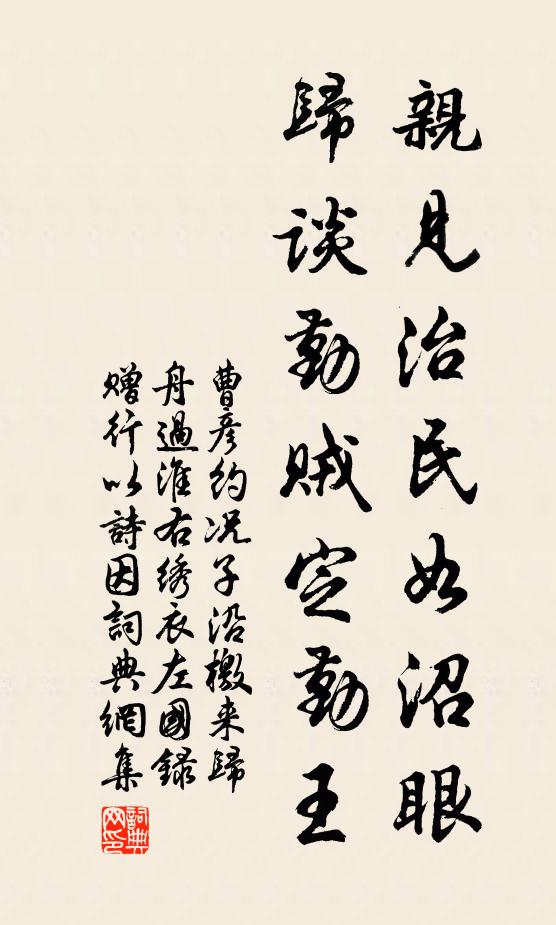 親見治民如沼眼
歸談勤賊定勤王
曹彦約况子沿檄来歸
舟過淮右綉衣左國録
赠行以詩因詞典網集
詞典
网印